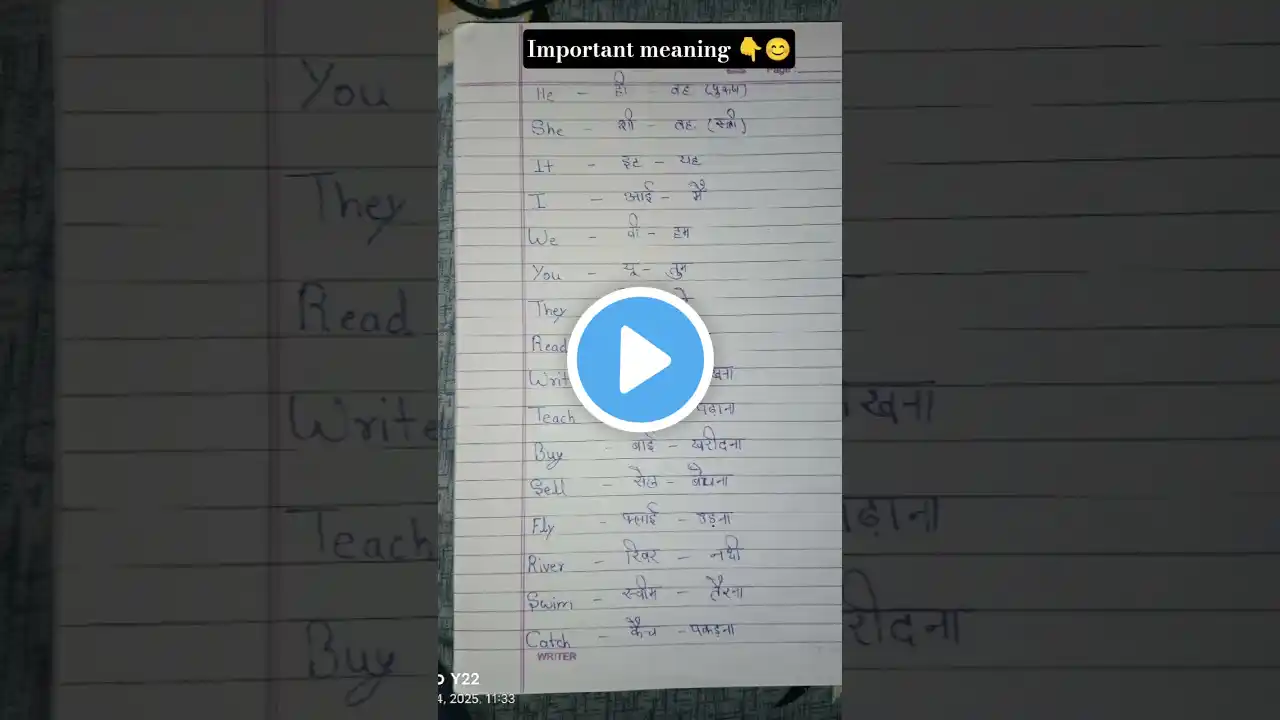 Important meaning 👇😊
Page
He - ही - वह (पुरुष)
She - शी - वह (स्त्री)
It - इट - यह
I - आई - मैं
We - वी - हम
You - यू - तुम
They
Read
Writ खना
Teach पढ़ाना
Buy - बाई - खरीदना
Sell - सेल - बेचना
Fly - फ्लाई - उड़ना
River - रिवर - नदी
Swim - स्वीम - तैरना
Catch - कैच - पकड़ना
WRITER
Y22
4, 2025, 11:33